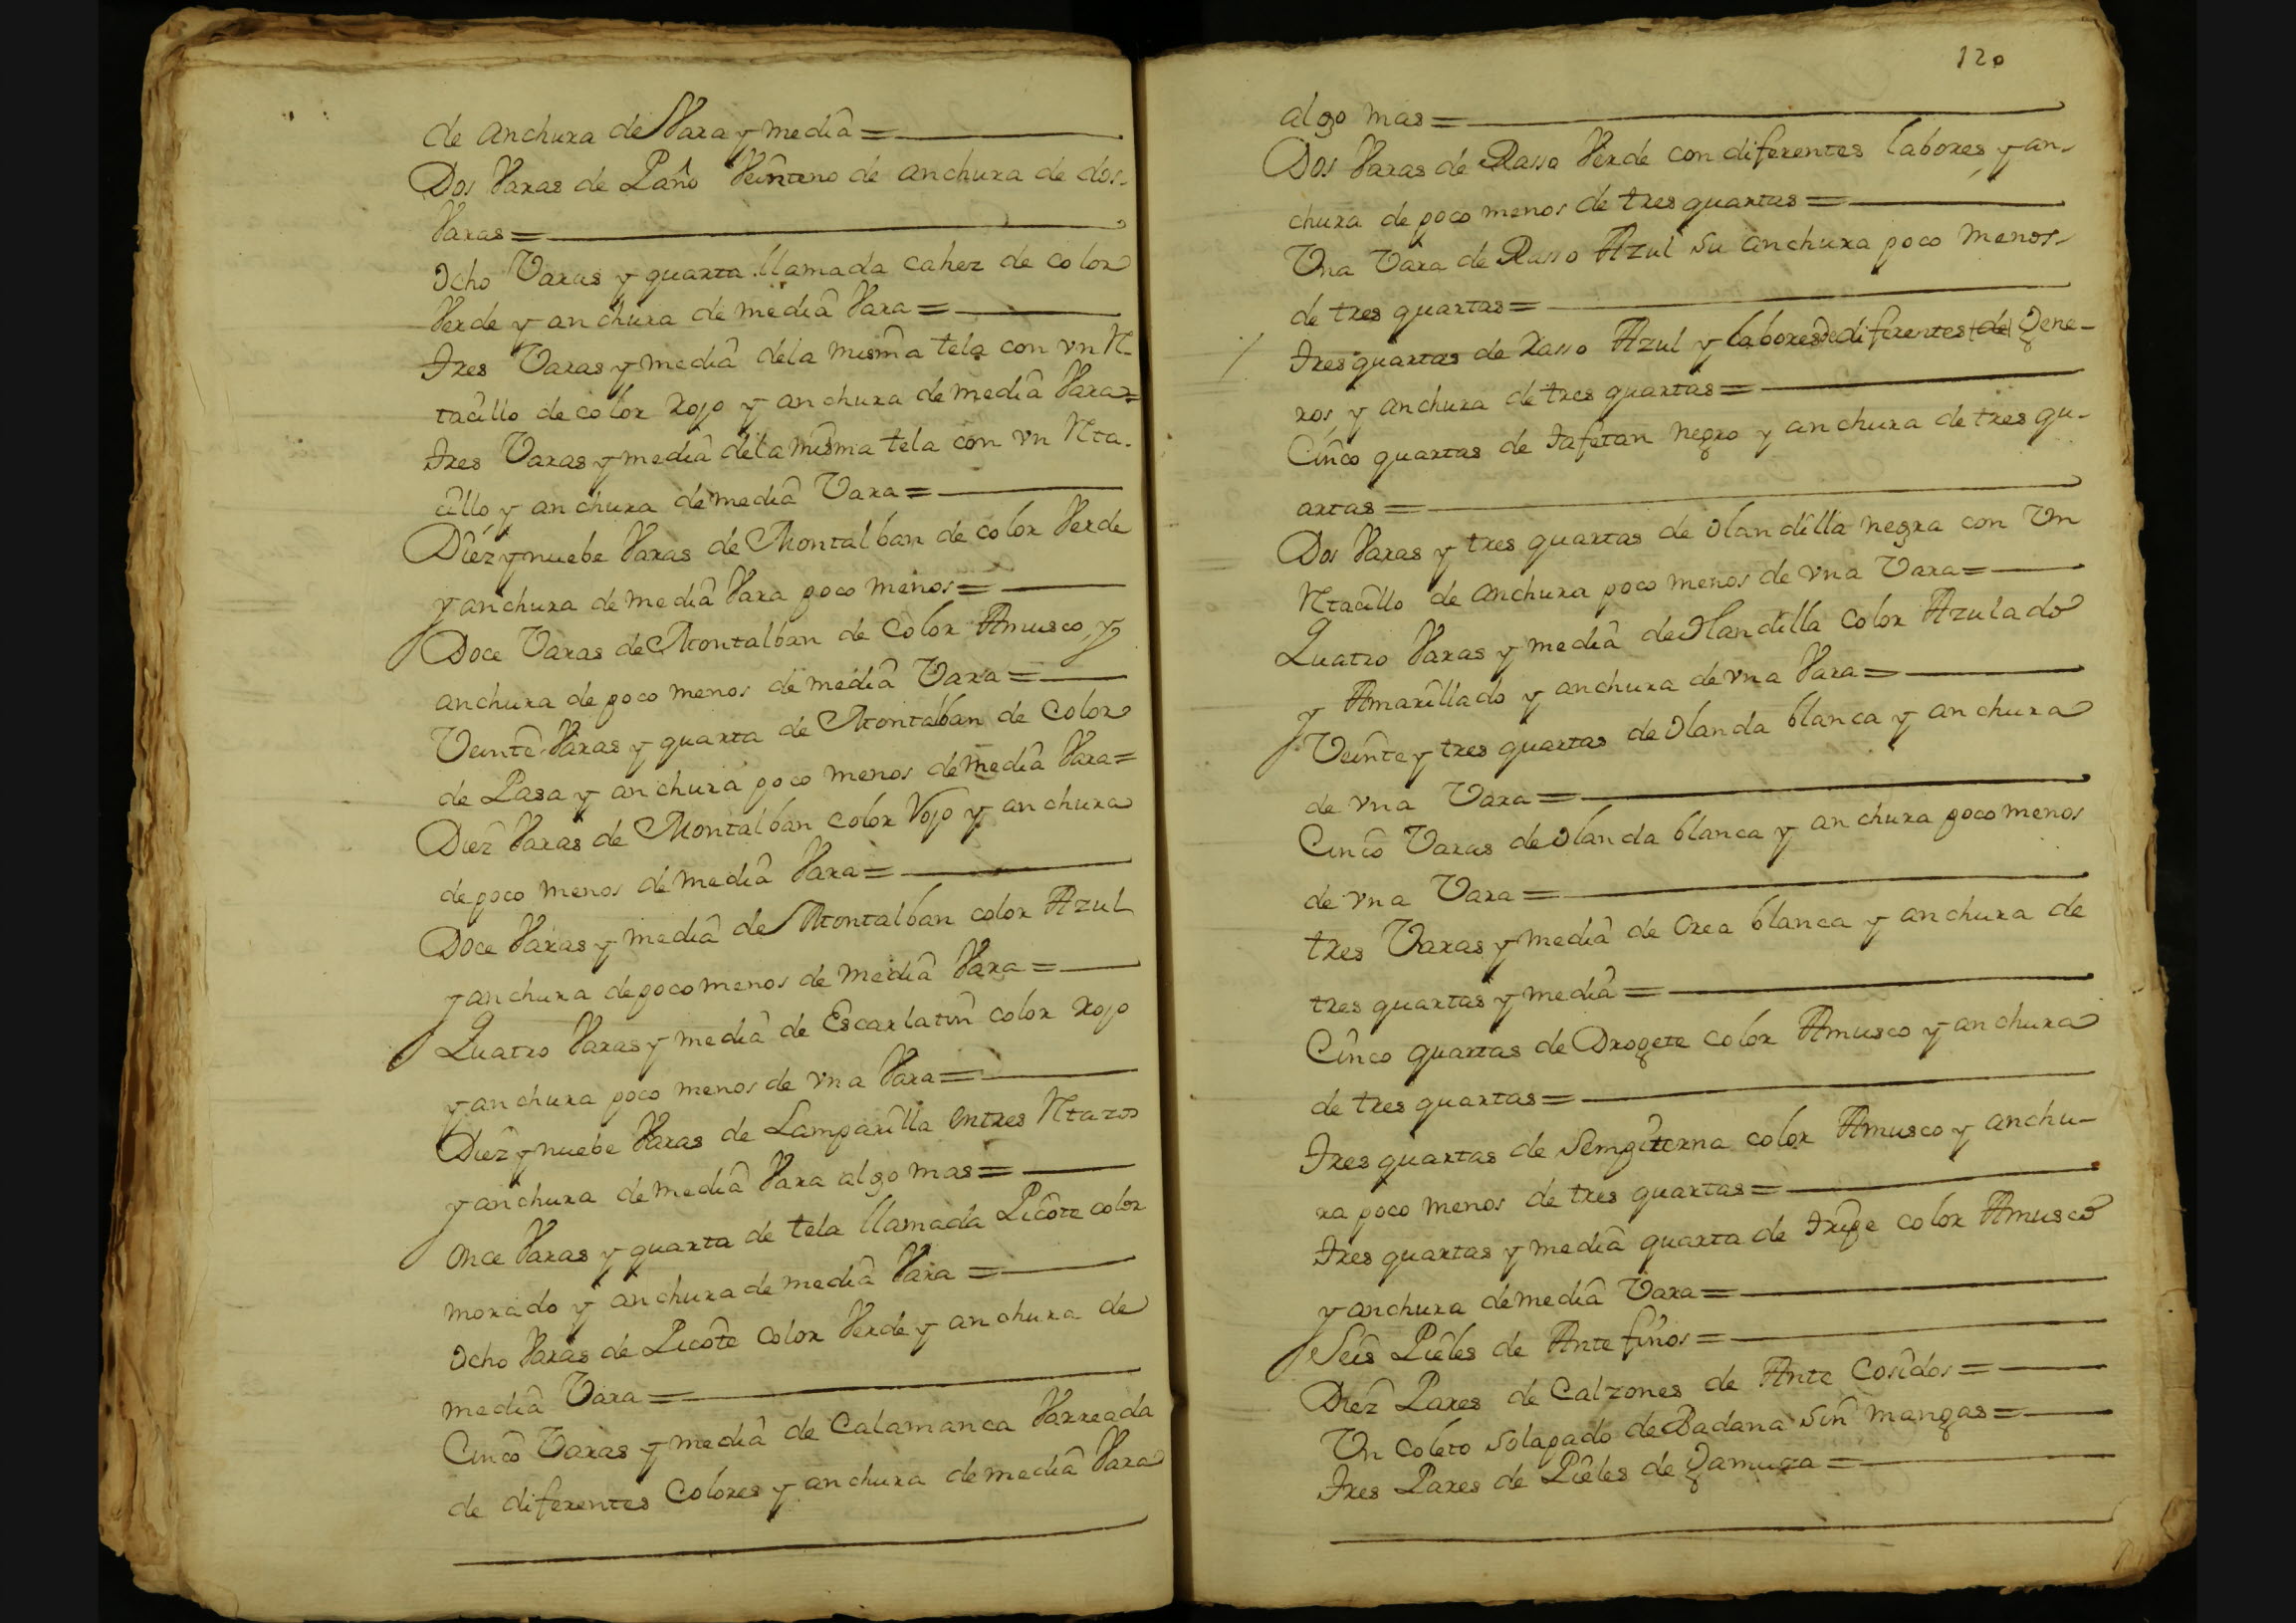 de anchura de Vara y media =
Dos Varas de Paño Veinteno de anchura de dos
Varas =
Ocho Varas y quarta llamada cahez de color
Verde y anchura de media Vara =
Tres Varas y media dela misma tela con vn Re-
tacillo de color Rojo y anchura de media Vara =
Tres Varas y media dela misma tela con vn Reta-
cillo y anchura de media Vara =
Diez y nuebe Varas de Montalban de color Verde
y anchura de media Vara poco menos =
Doce Varas de Montalban de Color Amusco, y
anchura de poco menos de media Vara =
Veinte Varas y quarta de Montalban de Color
de Pasa y anchura poco menos de media Vara =
Diez Varas de Montalban color Rojo y anchura
de poco menos de media Vara =
Doce Varas y media de Montalban color Azul
y anchura de poco menos de media Vara =
Quatro Varas y media de Escarlatin color Rojo
y anchura poco menos de vna Vara =
Diez y nuebe Varas de Lamparilla en tres Retazos
y anchura de media Vara algo mas =
Once Varas y quarta de tela llamada Picote color
morado y anchura de media Vara =
Ocho Varas de Picote Color Verde y anchura de
media Vara =
Cinco Varas y media de Calamanca Varreada
de diferentes Colores y anchura de media Vara
120
algo mas =
Dos Varas de Rasso Verde con diferentes labores, y an-
chura de poco menos de tres quartas =
Vna Vara de Rasso Azul su anchura poco menos
de tres quartas =
Tres quartas de Rasso Azul y labores de diferentes (de) Gene-
ros, y anchura de tres quartas =
Cinco quartas de Tafetan negro y anchura de tres qu-
artas =
Dos Varas y tres quartas de Olandilla negra con Vn
Retacillo de anchura poco menos de vna Vara =
Quatro Varas y media de Olandilla Color Azulado
y Amarillado y anchura de vna Vara =
Veinte y tres quartas de Olanda blanca y anchura
de vna Vara =
Cinco Varas de Olanda blanca y anchura poco menos
de vna Vara =
tres Varas y media de Crea blanca y anchura de
tres quartas y media =
Cinco quartas de Drogete Color Amusco y anchura
de tres quartas =
Tres quartas de Sempiterna color Amusco y anchu-
ra poco menos de tres quartas =
Tres quartas y media quarta de Tripe color Amusco
y anchura de media Vara =
Seis Pieles de Ante finos =
Diez Pares de Calzones de Ante Cosidos =
Vn Coleto solapado de Badana sin mangas =
Tres Pares de Pieles de Gamuza =